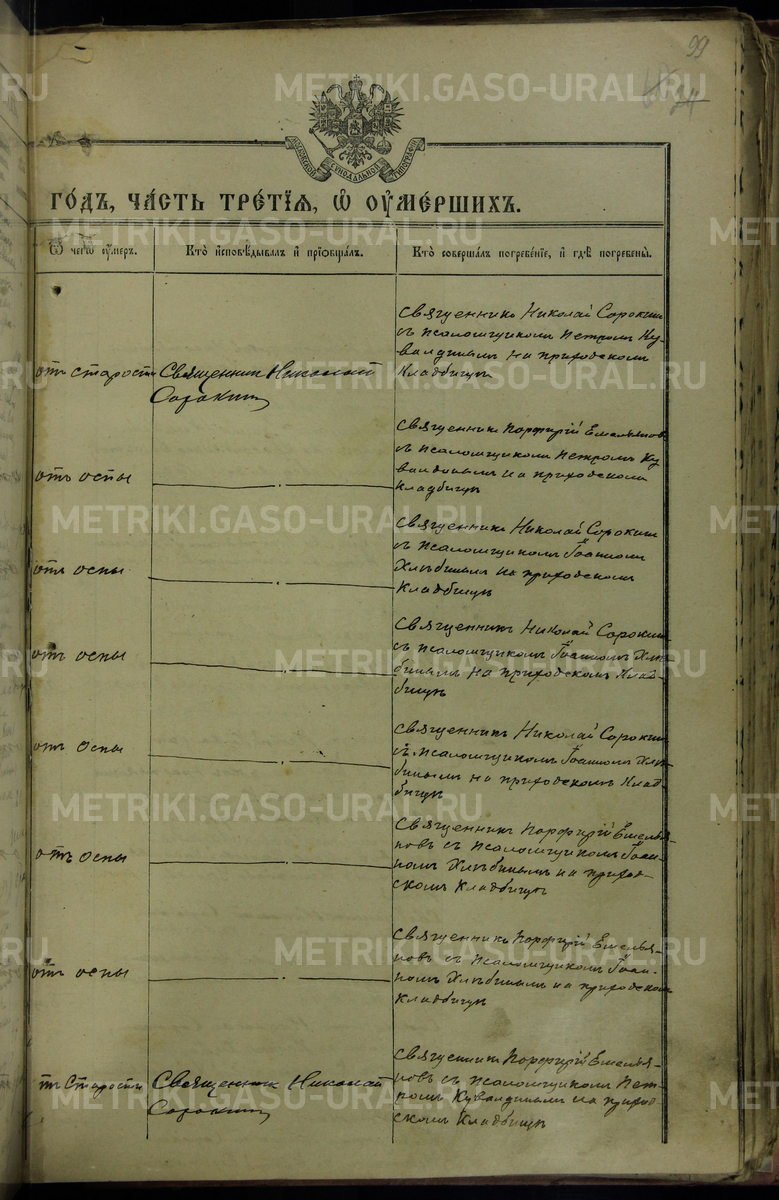 99
МОСКОВСКОЙ СѴНОДАЛЬНОЙ ТИПОГРАФІИ
го́дъ, ча́сть тре́тїѧ, ѡ҆ ᲂу҆ме́ршихъ.
Ѿ чегѡ̀ ᲂу҆́меръ.
Кто̀ и҆сповѣ́дывалъ и҆ прїѡбща́лъ.
Кто̀ соверша́лъ погребе́нїе, и҆ гдѣ̀ погребены̀.
отъ старости
Священник Николай
Сорокин
Священникъ Николай Сорокин
съ псаломщиком Петром Ку-
валдиным на приходском
кладбище
отъ оспы
Священникъ Порфирій Емельянов
съ псаломщиком Петромъ Ку
валдиным на приходском
кладбище
отъ оспы
Священникъ Николай Сорокин
съ псаломщиком Іоанном
Хлѣбиным на приходском
кладбище
отъ оспы
Священникъ Николай Сорокин
съ псаломщиком Іоанномъ Хлѣ-
биным на приходскомъ клад-
бище
отъ оспы
Священникъ Николай Сорокин
съ псаломщиком Іоанном Хлѣ-
биным на приходскомъ клад-
бище
отъ оспы
Священникъ Порфирій Емелья-
новъ съ псаломщикомъ Іоан-
номъ Хлѣбинымъ на приход-
скомъ кладбище
отъ оспы
Священникъ Порфирій Емелья-
новъ съ псаломщикомъ Іоан-
номъ Хлѣбиным на приходском
кладбище
тъ старости
Священник Николай
Сорокин
Священникъ Порфирій Емелья-
новъ съ псаломщиком Пет-
ром Кувалдиным на приход
ском кладбище
METRIKI.GASO-URAL.RU